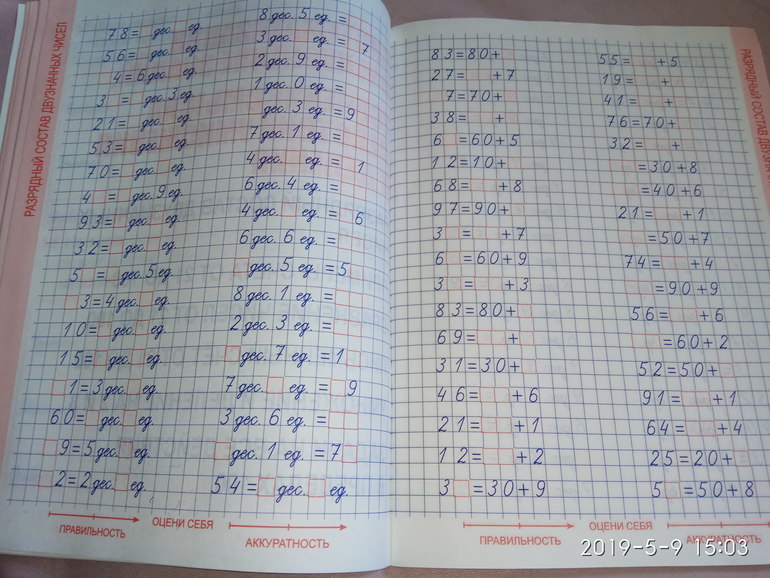 РАЗРЯДНЫЙ СОСТАВ ДВУЗНАЧНЫХ ЧИСЕЛ
78=□дес.□ед.
56=□дес.□ед.
□4=6дес.□ед.
3□=□дес.3ед.
21=□дес.□ед.
53=□дес.□ед.
70=□дес.□ед.
4□=□дес.9ед.
93=□дес.□ед.
32=□дес.□ед.
5□=□дес.5ед.
□3=4дес.□ед.
10=□дес.□ед.
15=□дес.□ед.
□1=3дес.□ед.
60=□дес.□ед.
□9=5дес.□ед.
□2=2дес.□ед.
8дес.5ед.=□□
3дес.□ед.=□7
2дес.9ед.=□□
1дес.0ед.=□□
□дес.3ед.=9□
7дес.1ед.=□□
4дес.□ед.=□1
6дес.4ед.=□□
4дес.□ед.=□6
6дес.6ед.=□□
□дес.5ед.=5□
8дес.1ед.=□□
2дес.3ед.=□□
□дес.7ед.=1□
7дес.□ед.=□9
3дес.6ед.=□□
□дес.1ед.=7□
54=□дес.□ед.
ПРАВИЛЬНОСТЬ
ОЦЕНИ СЕБЯ
АККУРАТНОСТЬ
83=80+□
27=□□+7
□7=70+□
38=□□+□
6□=60+5
12=10+□
68=□□+8
97=90+□
3□=□□+7
6□=60+9
3□=□□+3
83=80+□
69=□□+□
31=30+□
46=□□+6
21=□□+1
12=□□+2
3□=30+9
55=□□+5
19=□□+□
41=□□+□
76=70+□
32=□□+□
□□=30+8
□□=40+6
21=□□+1
□□=50+7
74=□□+4
□□=90+9
56=□□+6
□□=60+2
52=50+□
91=□□+1
64=□□+4
25=20+□
5□=50+8
РАЗРЯДНЫЙ СОСТАВ
ПРАВИЛЬНОСТЬ
ОЦЕНИ СЕБЯ
АККУРАТНОСТЬ
2019-5-9 15:03